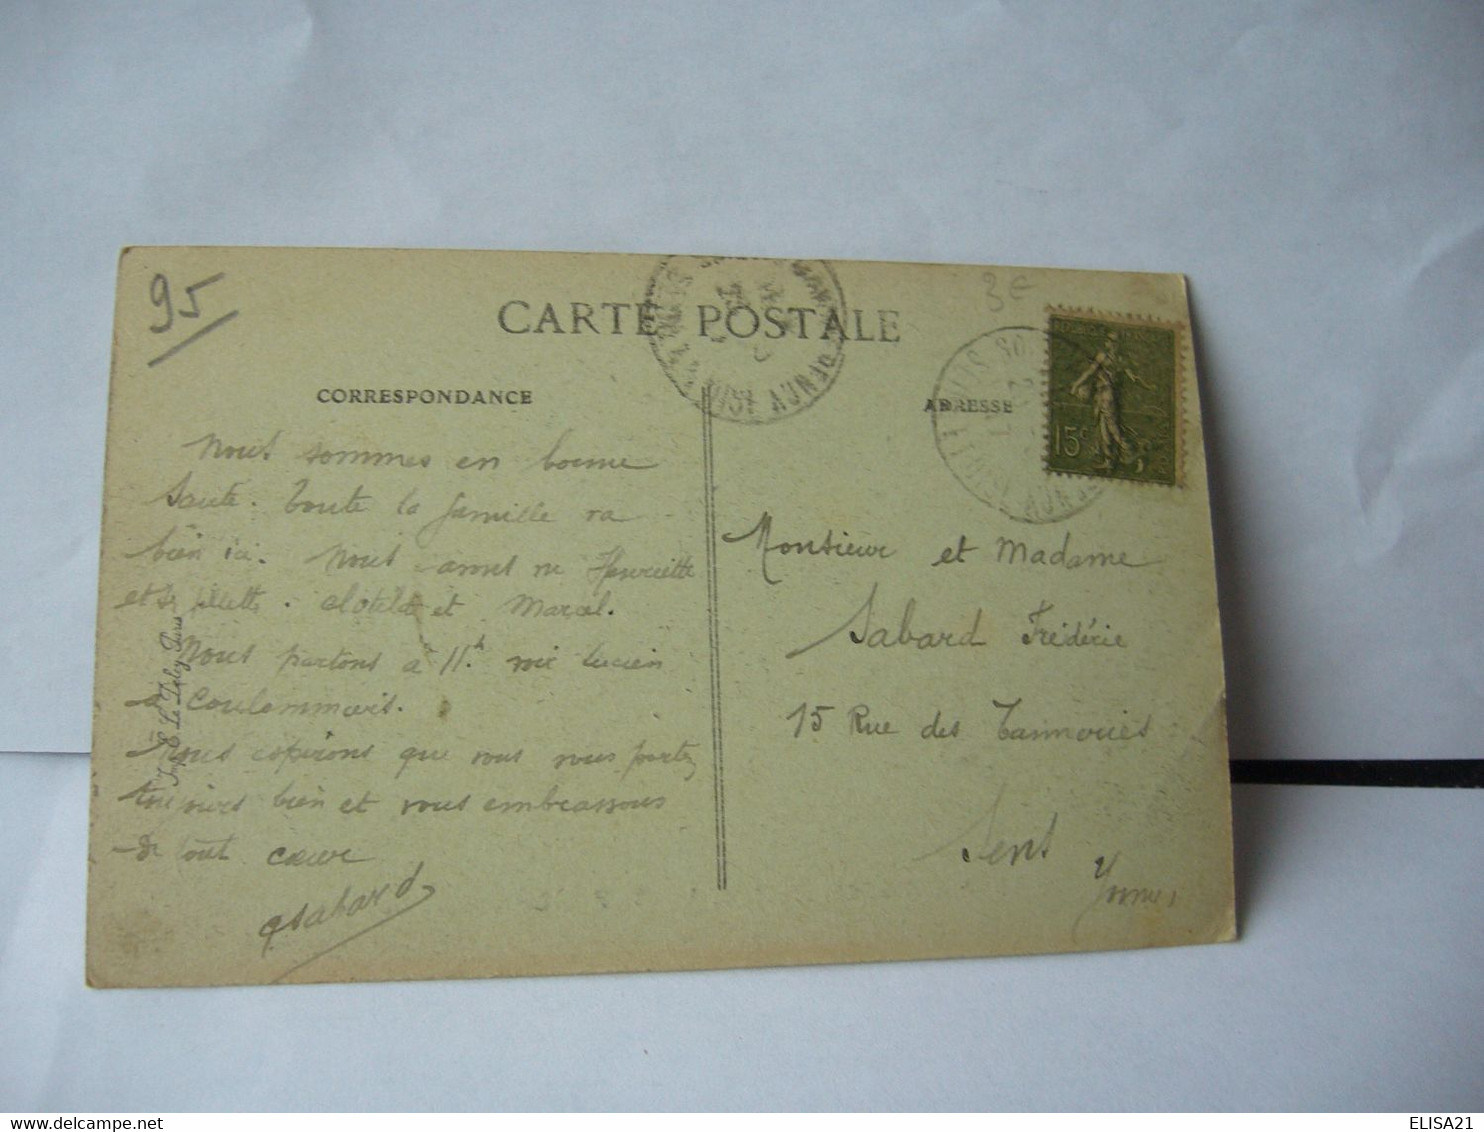 95
3€
CARTE POSTALE
CORRESPONDANCE
ADRESSE
15c
Nous sommes en bonne
santé. Toute la famille va
bien ici. Nous avons vu Henriette
et sa fillette. Clotilde et Marcel.
Nous partons à 11h voir Lucien
à Coulommiers.
Nous espérons que vous vous portez
toujours bien et vous embrassons
de tout cœur
Sabard
Monsieur et Madame
Sabard Frédéric
15 Rue des Tanneries
Sens
Yonne
Imp. E. Le Deley Paris
ELISA21